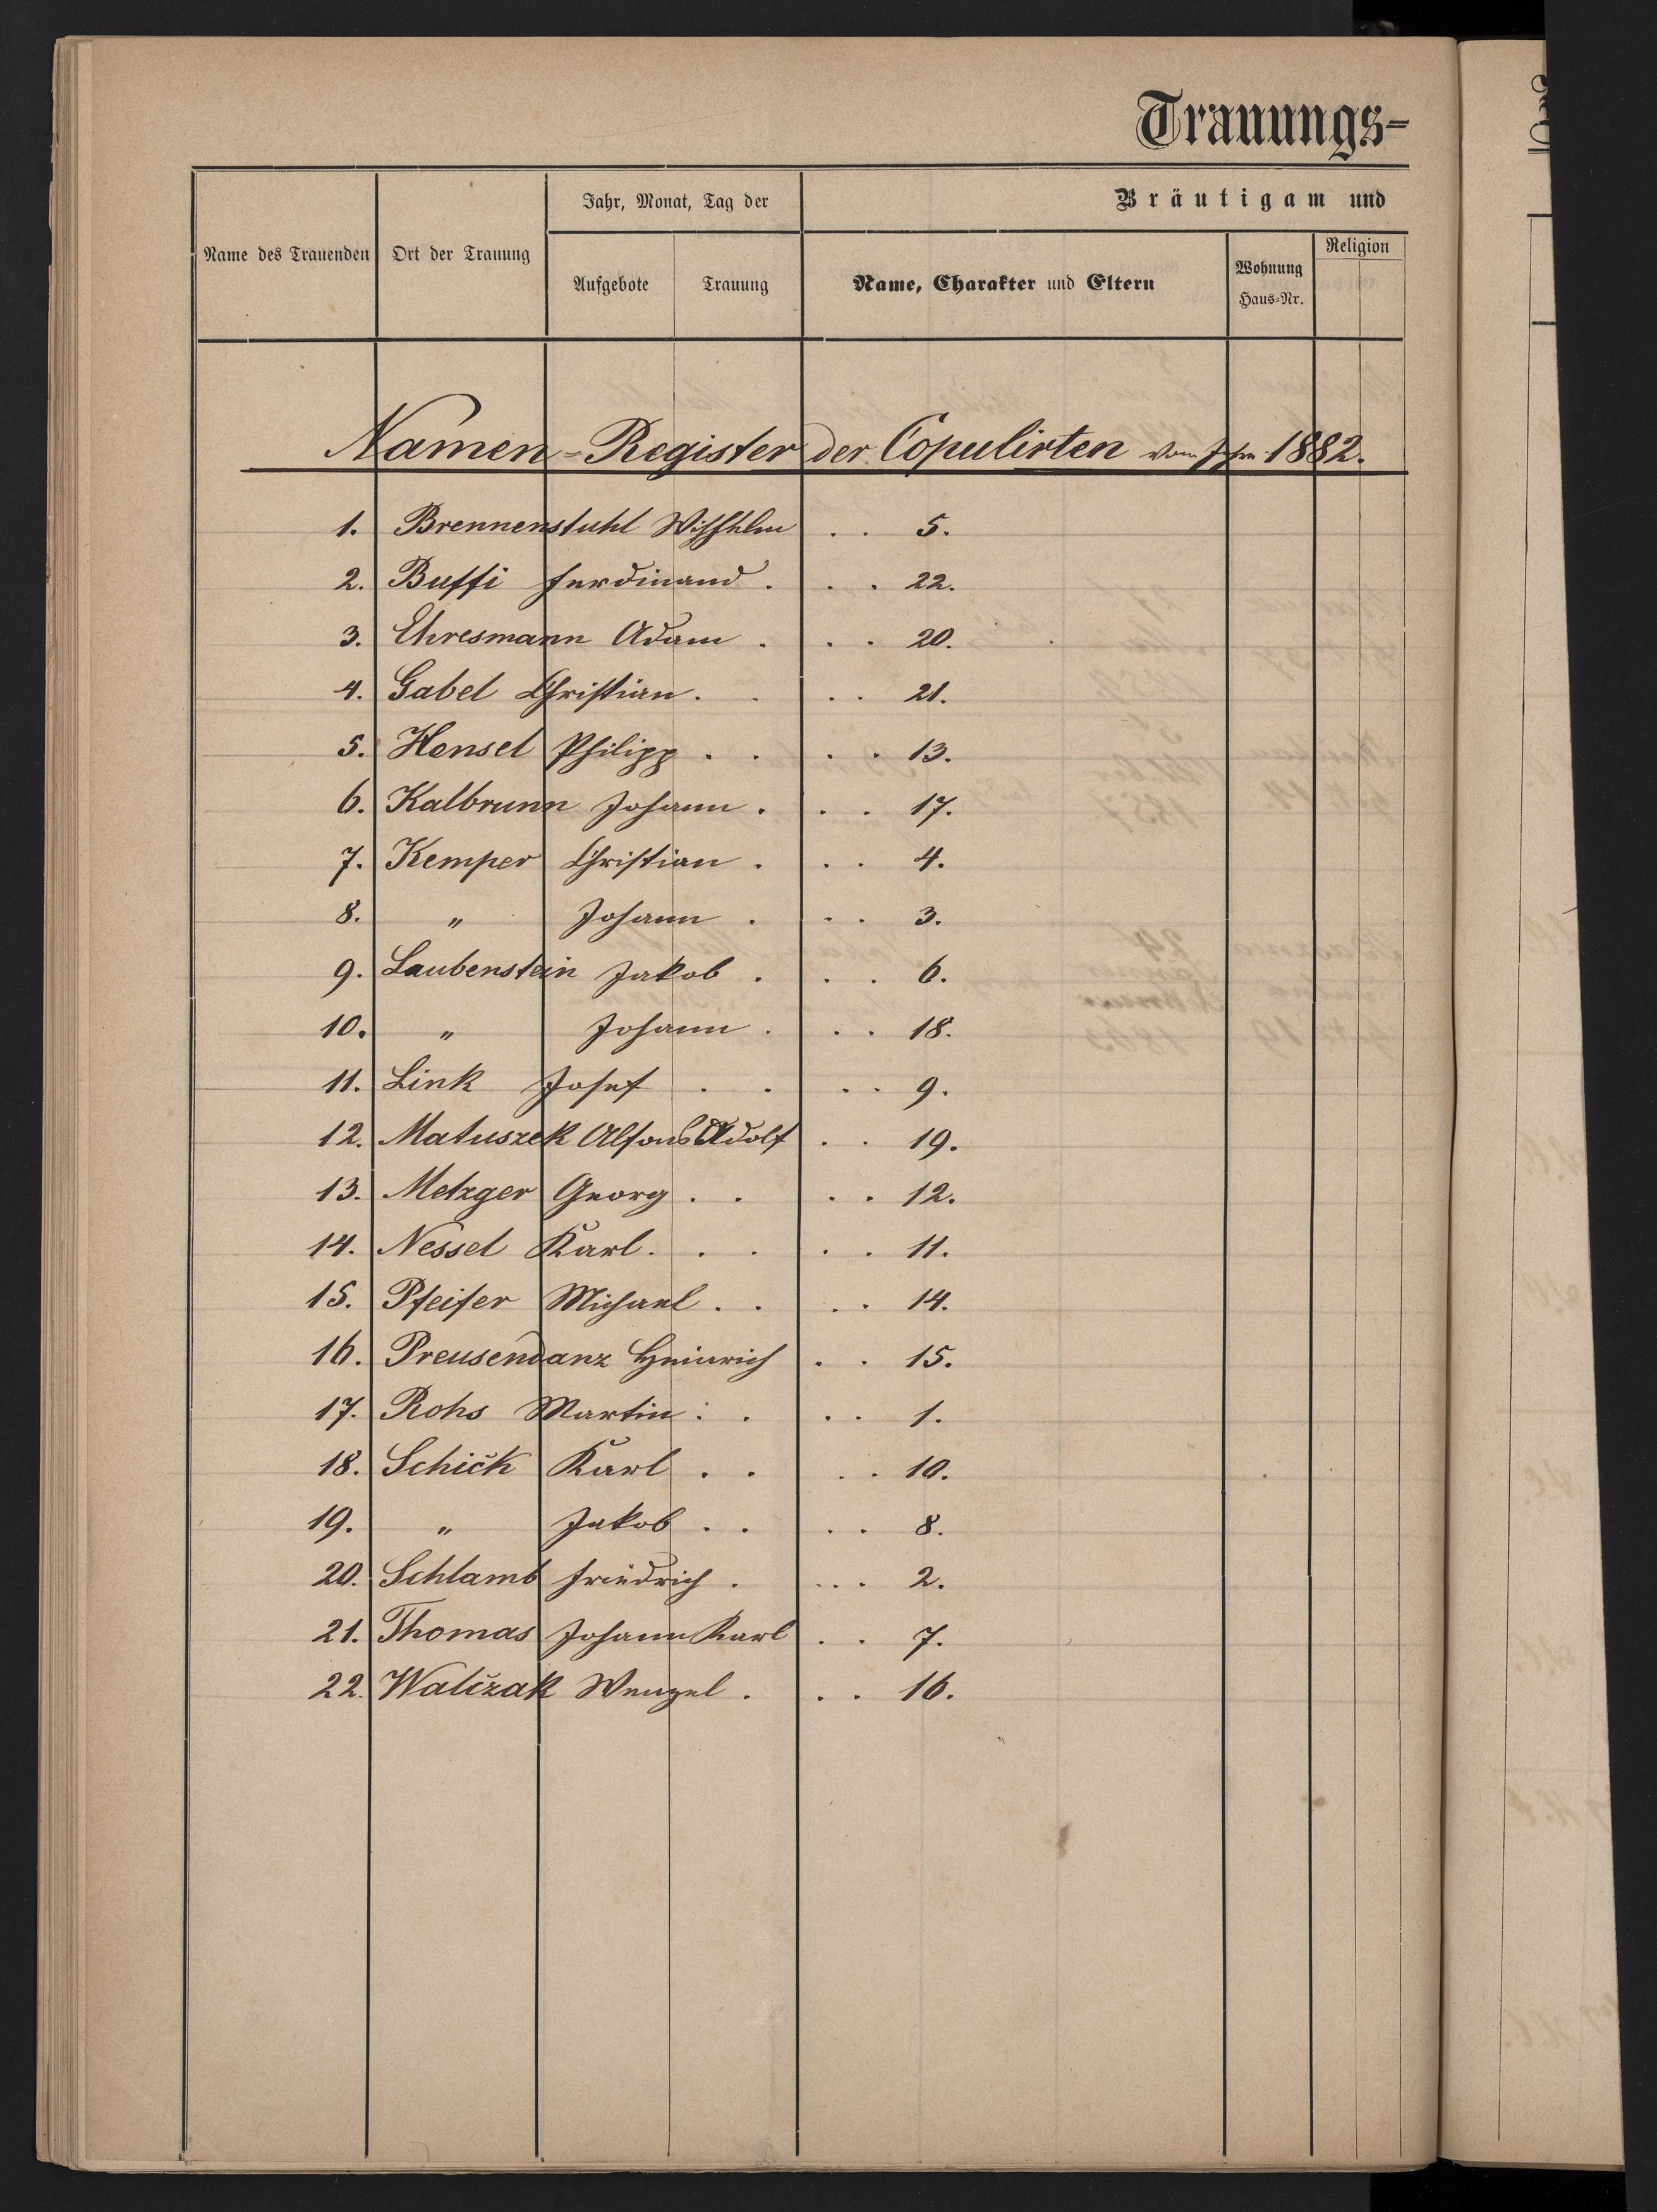 Trauungs-
Jahr, Monat, Tag der
Bräutigam und
Name des Trauenden
Ort der Trauung
Aufgebote
Trauung
Name, Charakter und Eltern
Wohnung
Haus-Nr.
Religion
Namen-Register der Copulirten vom Jahre 1882.
1. Brennenstuhl Wilhelm . . 5.
2. Buffi Ferdinand . . . 22.
3. Ehresmann Adam . . . 20.
4. Gabel Christian . . . . 21.
5. Hensel Philipp . . . . 13.
6. Kalbrunn Johann . . . 17.
7. Kemper Christian . . . 4.
8. " Johann . . . 3.
9. Laubenstein Jakob . . . 6.
10. " Johann . . . 18.
11. Link Josef . . . . 9.
12. Matuszek Alfons Adolf . . 19.
13. Metzger Georg . . . . 12.
14. Nessel Karl . . . . 11.
15. Pfeifer Michael . . . . 14.
16. Preusendanz Heinrich . . 15.
17. Rohs Martin : . . . 1.
18. Schick Karl . . . . 10.
19. " Jakob . . . . 8.
20. Schlamb Friedrich . . . . 2.
21. Thomas Johann Karl . . 7.
22. Walizak Wenzel . . . 16.